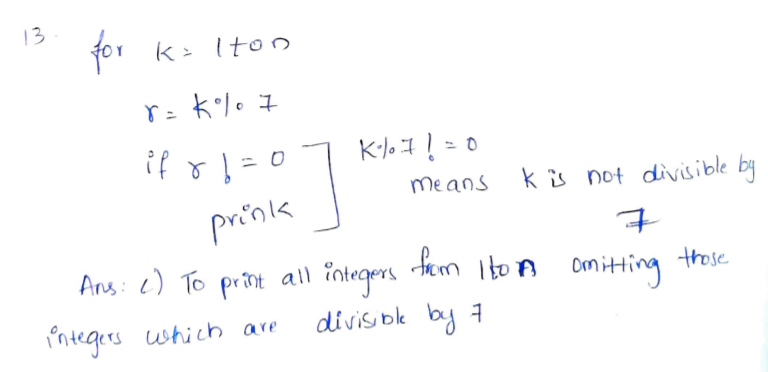 13.
for k = 1 to n
r = k % 7
if r != 0
K % 7 != 0
means k is not divisible by 7
prink
Ans: c) To print all integers from 1 to n omitting those
integers which are divisible by 7